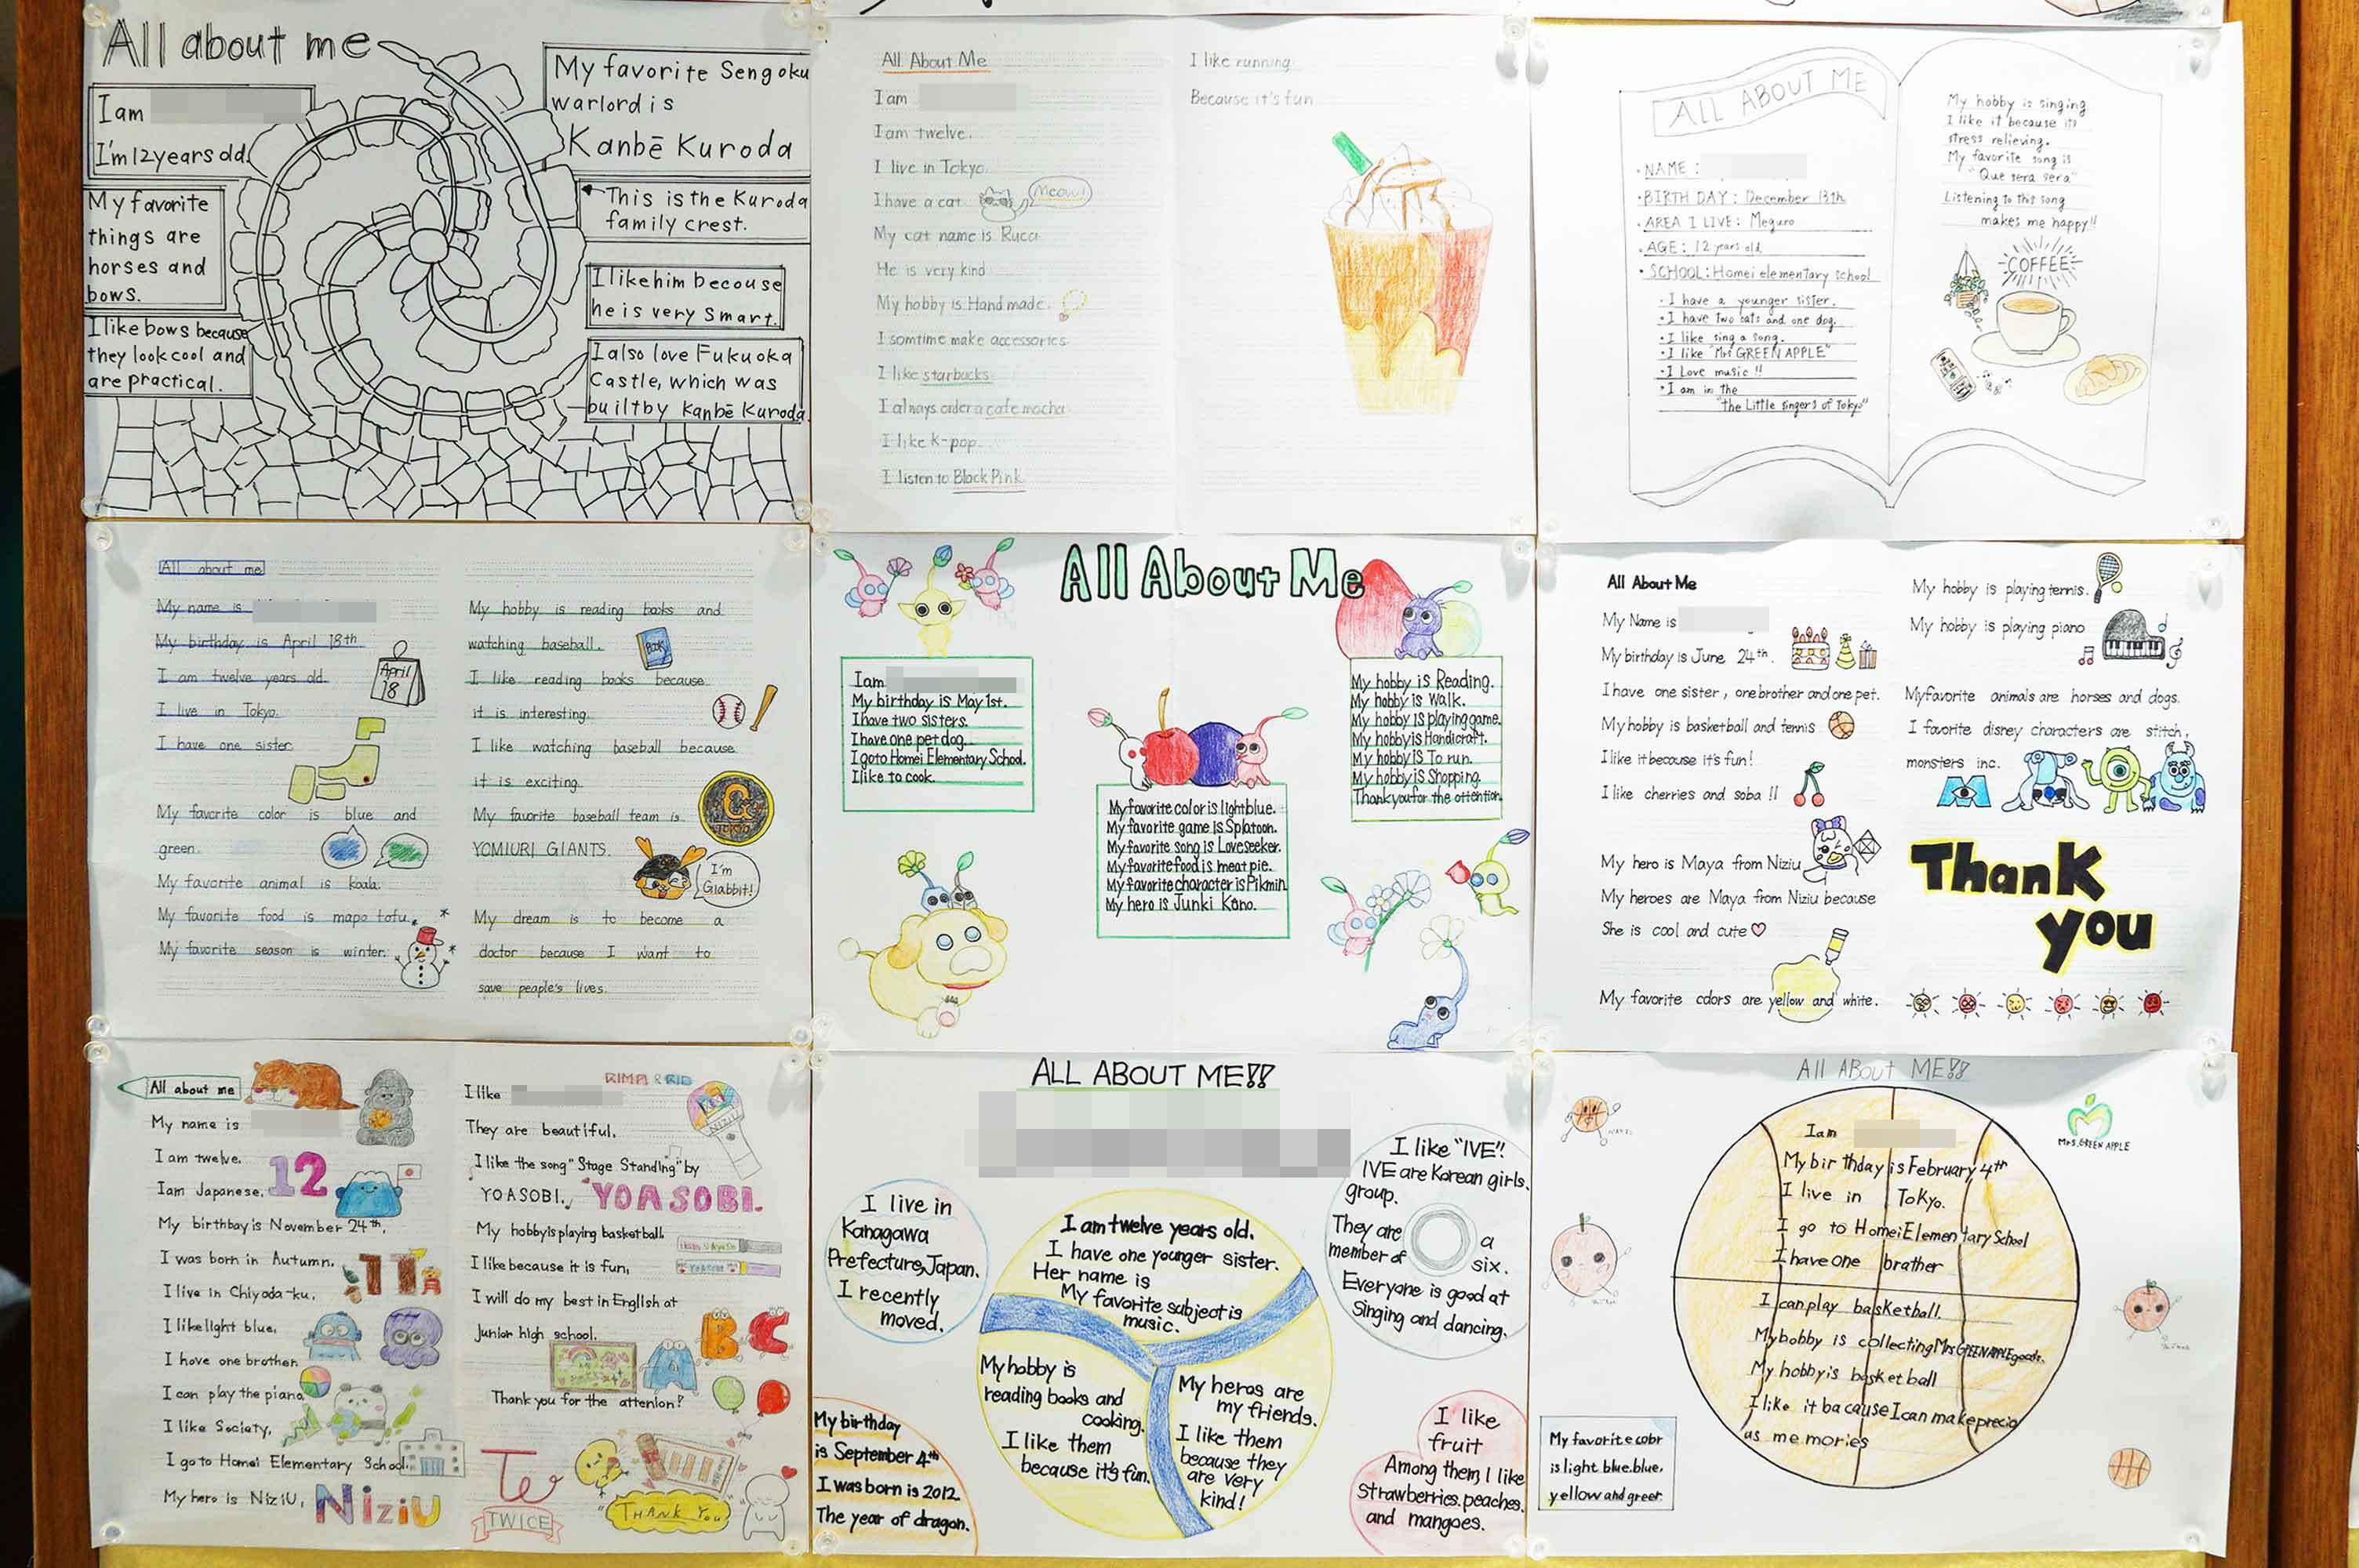 All about me
I am
I'm 12 years old.
My favorite
things are
horses and
bows.
I like bows because
they look cool and
are practical.
My favorite Sengoku
warlord is
Kanbē Kuroda
This is the Kuroda
family crest.
I like him becouse
he is very smart.
I also love Fukuoka
Castle, which was
built by Kanbē Kuroda.
All About Me
I am
I am twelve.
I live in Tokyo.
I have a cat
Meow!
My cat name is Rucca
He is very kind
My hobby is Hand made.
I somtime make accessories.
I like starbucks
I always order a cafe mocha
I like K-pop.
I listen to Black Pink
I like running
Because it's fun
ALL ABOUT ME
・NAME :
・BIRTH DAY : December 13th
・AREA I LIVE : Meguro
・AGE : 12 years old
・SCHOOL : Homei elementary school
・I have a younger sister.
・I have two cats and one dog.
・I like sing a song.
・I like "Mrs GREEN APPLE"
・I Love music !!
・I am in the
"the Little singers of Tokyo"
My hobby is singing
I like it because its
stress relieving.
My favorite song is
"Que sera sera"
Listening to this song
makes me happy!!
COFFEE
All about me
My name is
My birthday is April 18th
April
18
I am twelve years old.
I live in Tokyo.
I have one sister.
My favorite color is blue and
green.
My favorite animal is koala.
My favorite food is mapo tofu.
My favorite season is winter.
My hobby is reading books and
watching baseball.
BOOK
I like reading books because
it is interesting.
I like watching baseball because
it is exciting.
My favorite baseball team is
YOMIURI GIANTS.
G
TOKYO
I'm
Giabbit!
My dream is to become a
doctor because I want to
save people's lives.
All About Me
I am
My birthday is May 1st.
I have two sisters.
I have one pet dog.
I go to Homei Elementary School.
I like to cook.
My favorite color is lightblue.
My favorite game is Splatoon.
My favorite song is Loveseeker.
My favorite food is meat pie.
My favorite character is Pikmin
My hero is Junki Kono.
My hobby is Reading.
My hobby is Walk.
My hobby is playing game.
My hobby is Handicraft.
My hobby is To run.
My hobby is Shopping.
Thank you for the attention
All About Me
My Name is
My birthday is June 24th.
I have one sister, one brother and one pet.
My hobby is basketball and tennis
I like it because it's fun!
I like cherries and soba !!
My hero is Maya from Niziu
My heroes are Maya from Niziu because
She is cool and cute♡
My favorite colors are yellow and white.
My hobby is playing tennis.
My hobby is playing piano
My favorite animals are horses and dogs.
I favorite disney characters are stitch,
monsters inc.
Thank
you
All about me
My name is
I am twelve.
12
I am Japanese.
My birthbay is November 24th.
I was born in Autumn.
11
I live in Chiyoda-ku.
I like light blue.
I hove one brother.
I can play the piano.
I like Society.
I go to Homei Elementary School.
My hero is NiziU,
NiziU
I like
RIMA & RIO
NIZIU
They are beautiful.
I like the song "Stage Standing" by
YOASOBI.
YOASOBI.
My hobby is playing basketball.
I like because it is fun,
I will do my best in English at
Junior high school.
A B C
Thank you for the attenion!
TWICE
THANK YOU
ALL ABOUT ME!!
I live in
Kanagawa
Prefecture, Japan.
I recently
moved.
I am twelve years old.
I have one younger sister.
Her name is
My favorite subject is
music.
My hobby is
reading books and
cooking.
I like them
because it's fun.
My heros are
my friends.
I like them
because they
are very
kind!
I like "IVE".
IVE are Korean girls.
group.
They are a
member of six.
Everyone is good at
Singing and dancing.
My birthday
is September 4th
I was born is 2012.
The year of dragon.
I like
fruit
Among them, I like
strawberries. peaches.
and mangoes.
All About ME!!
Mrs. GREEN APPLE
I am
My bir thday is February, 4th
I live in Tokyo.
I go to Homei Elemen tary School
I have one brather
I can play basketball.
My bobby is collecting Mrs GREEN APPLE goods.
My hobby is basket ball
I like it ba cause I can make precio
us me mories
My favorite color
is light blue. blue.
yellow and green